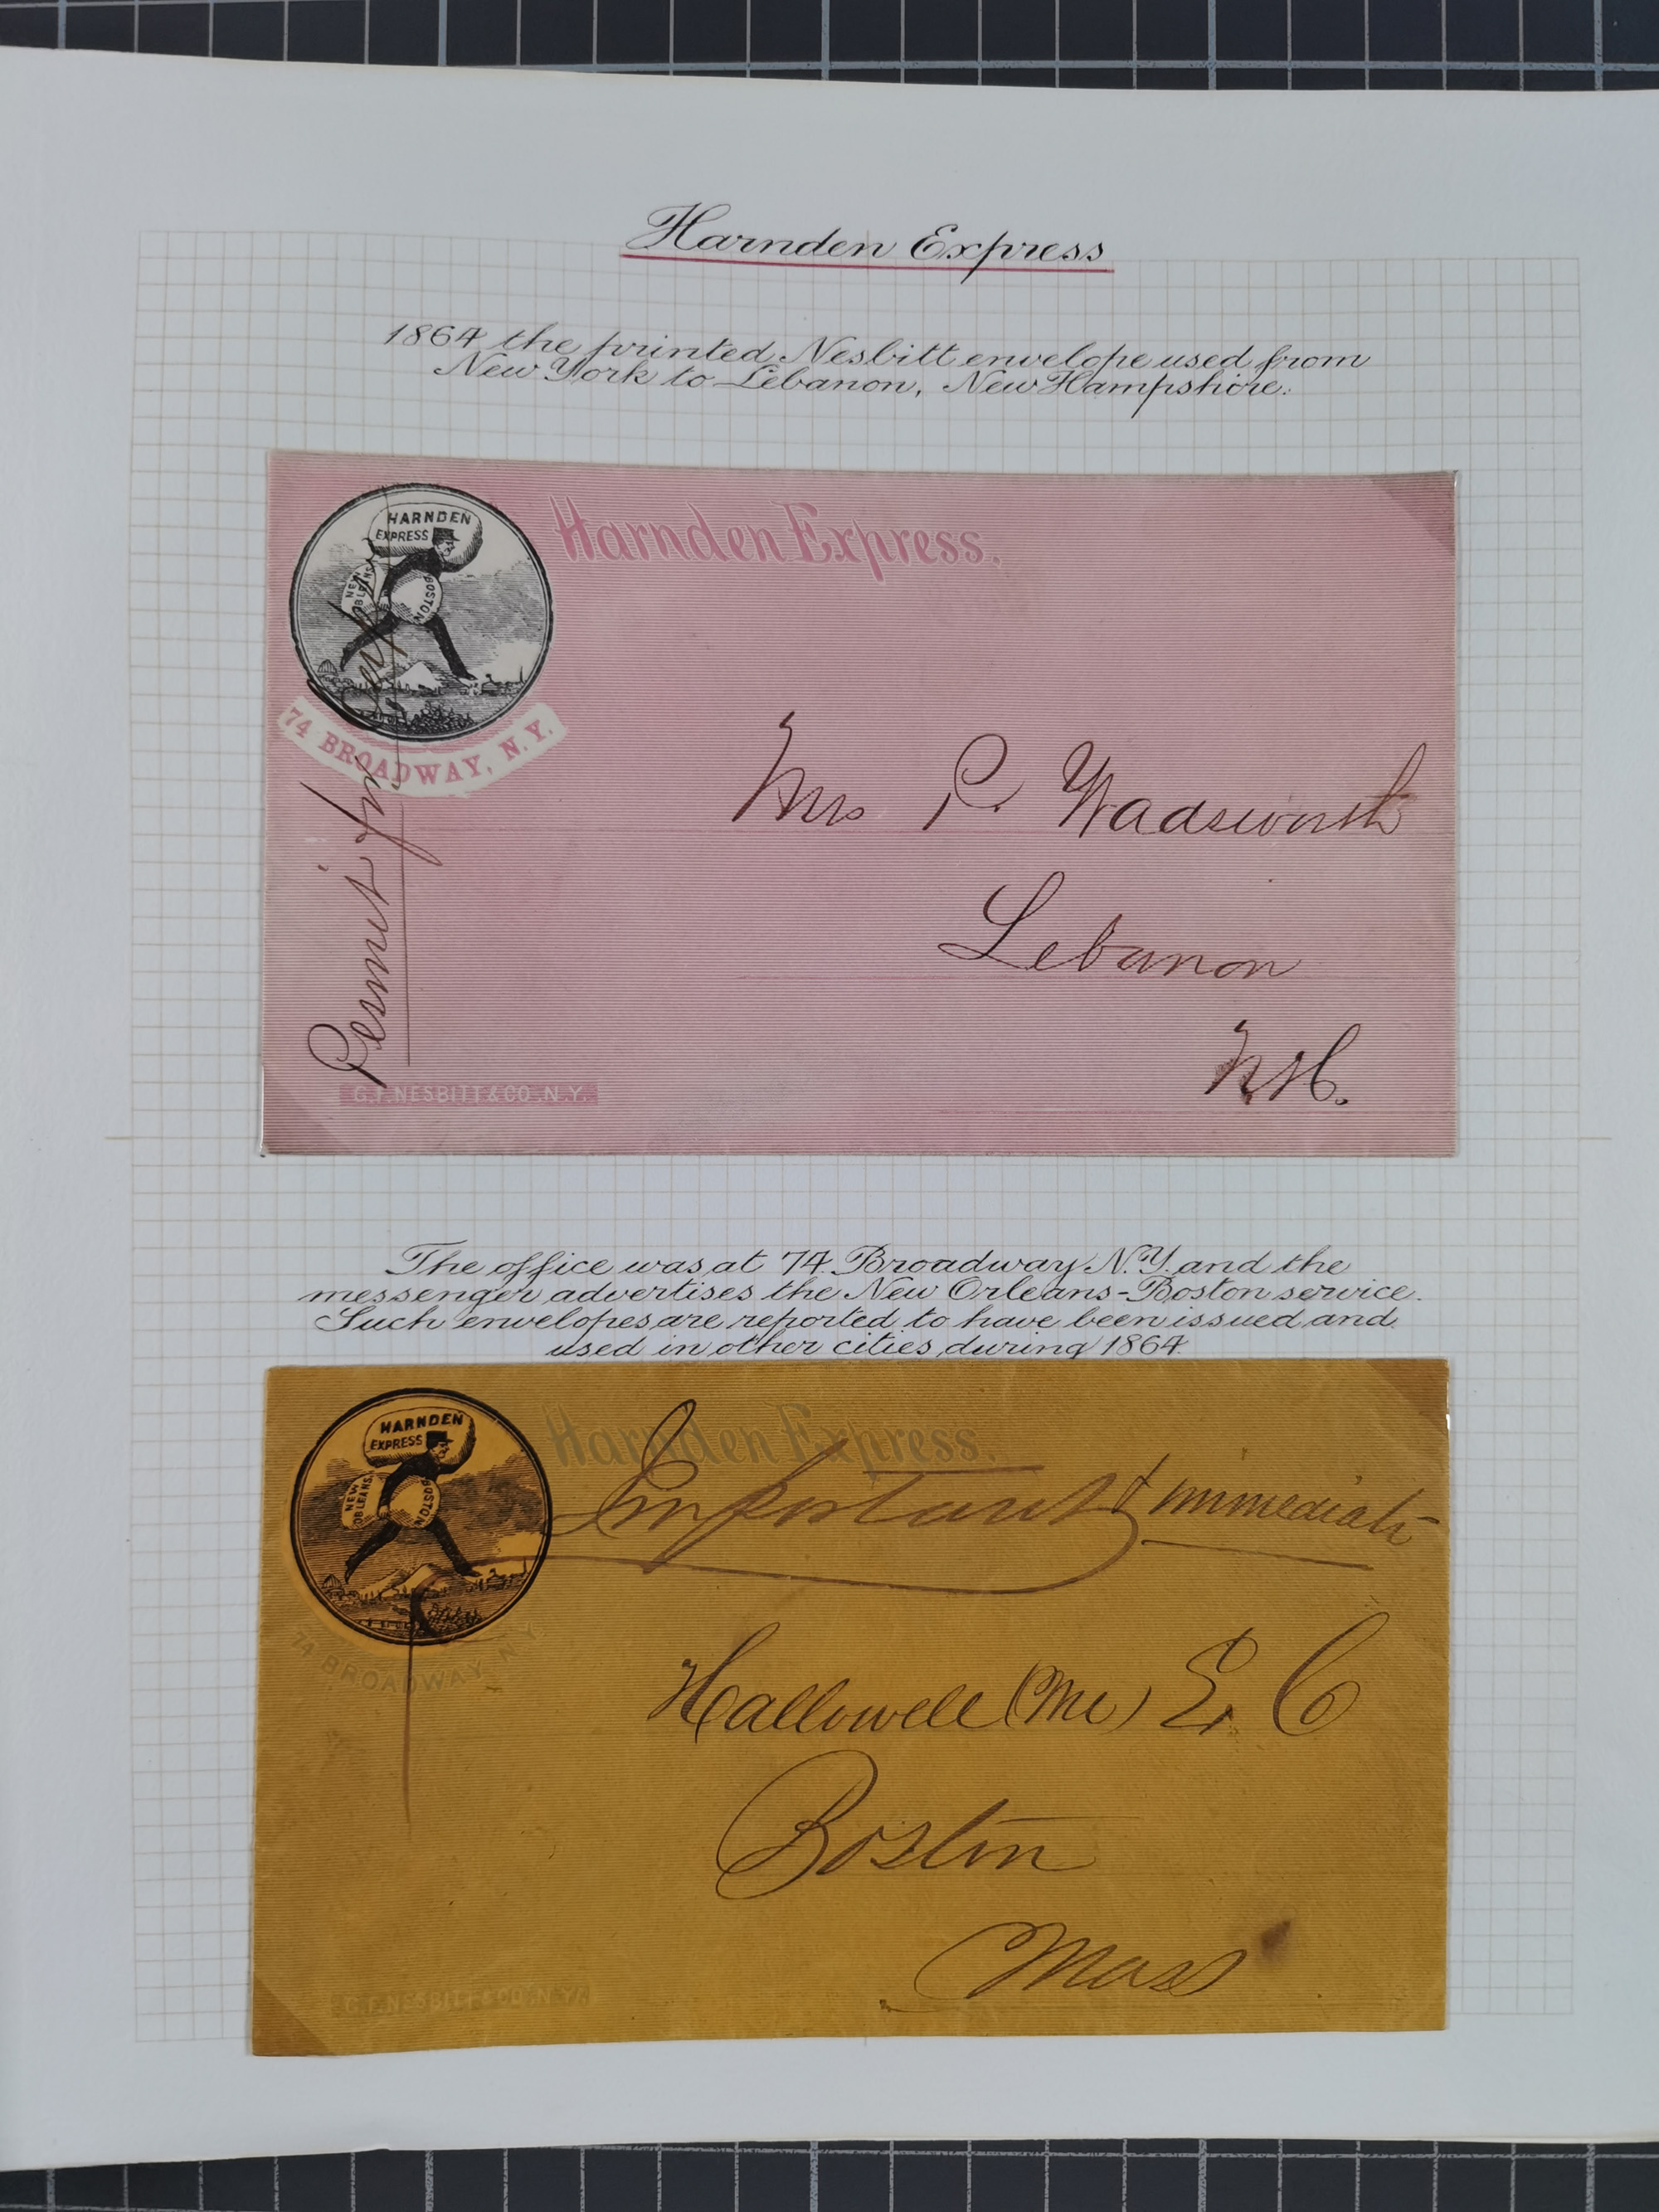 Harnden Express
1864 the printed Nesbitt envelope used from
New York to Lebanon, New Hampshire.
HARNDEN
EXPRESS
NEW
ORLEANS
BOSTON
Harnden Express.
74 BROADWAY, N.Y.
Mrs P. Wadsworth
Lebanon
N.H.
G.F. NESBITT & CO. N.Y.
The office was at 74 Broadway N.Y. and the
messenger advertises the New Orleans-Boston service.
Such envelopes are reported to have been issued and
used in other cities, during 1864.
HARNDEN
EXPRESS
NEW
ORLEANS
BOSTON
Harnden Express.
Important & immediate
74 BROADWAY, N.Y.
Hallowell (Me) E. C
Boston
Mass
G.F. NESBITT & CO. N.Y.